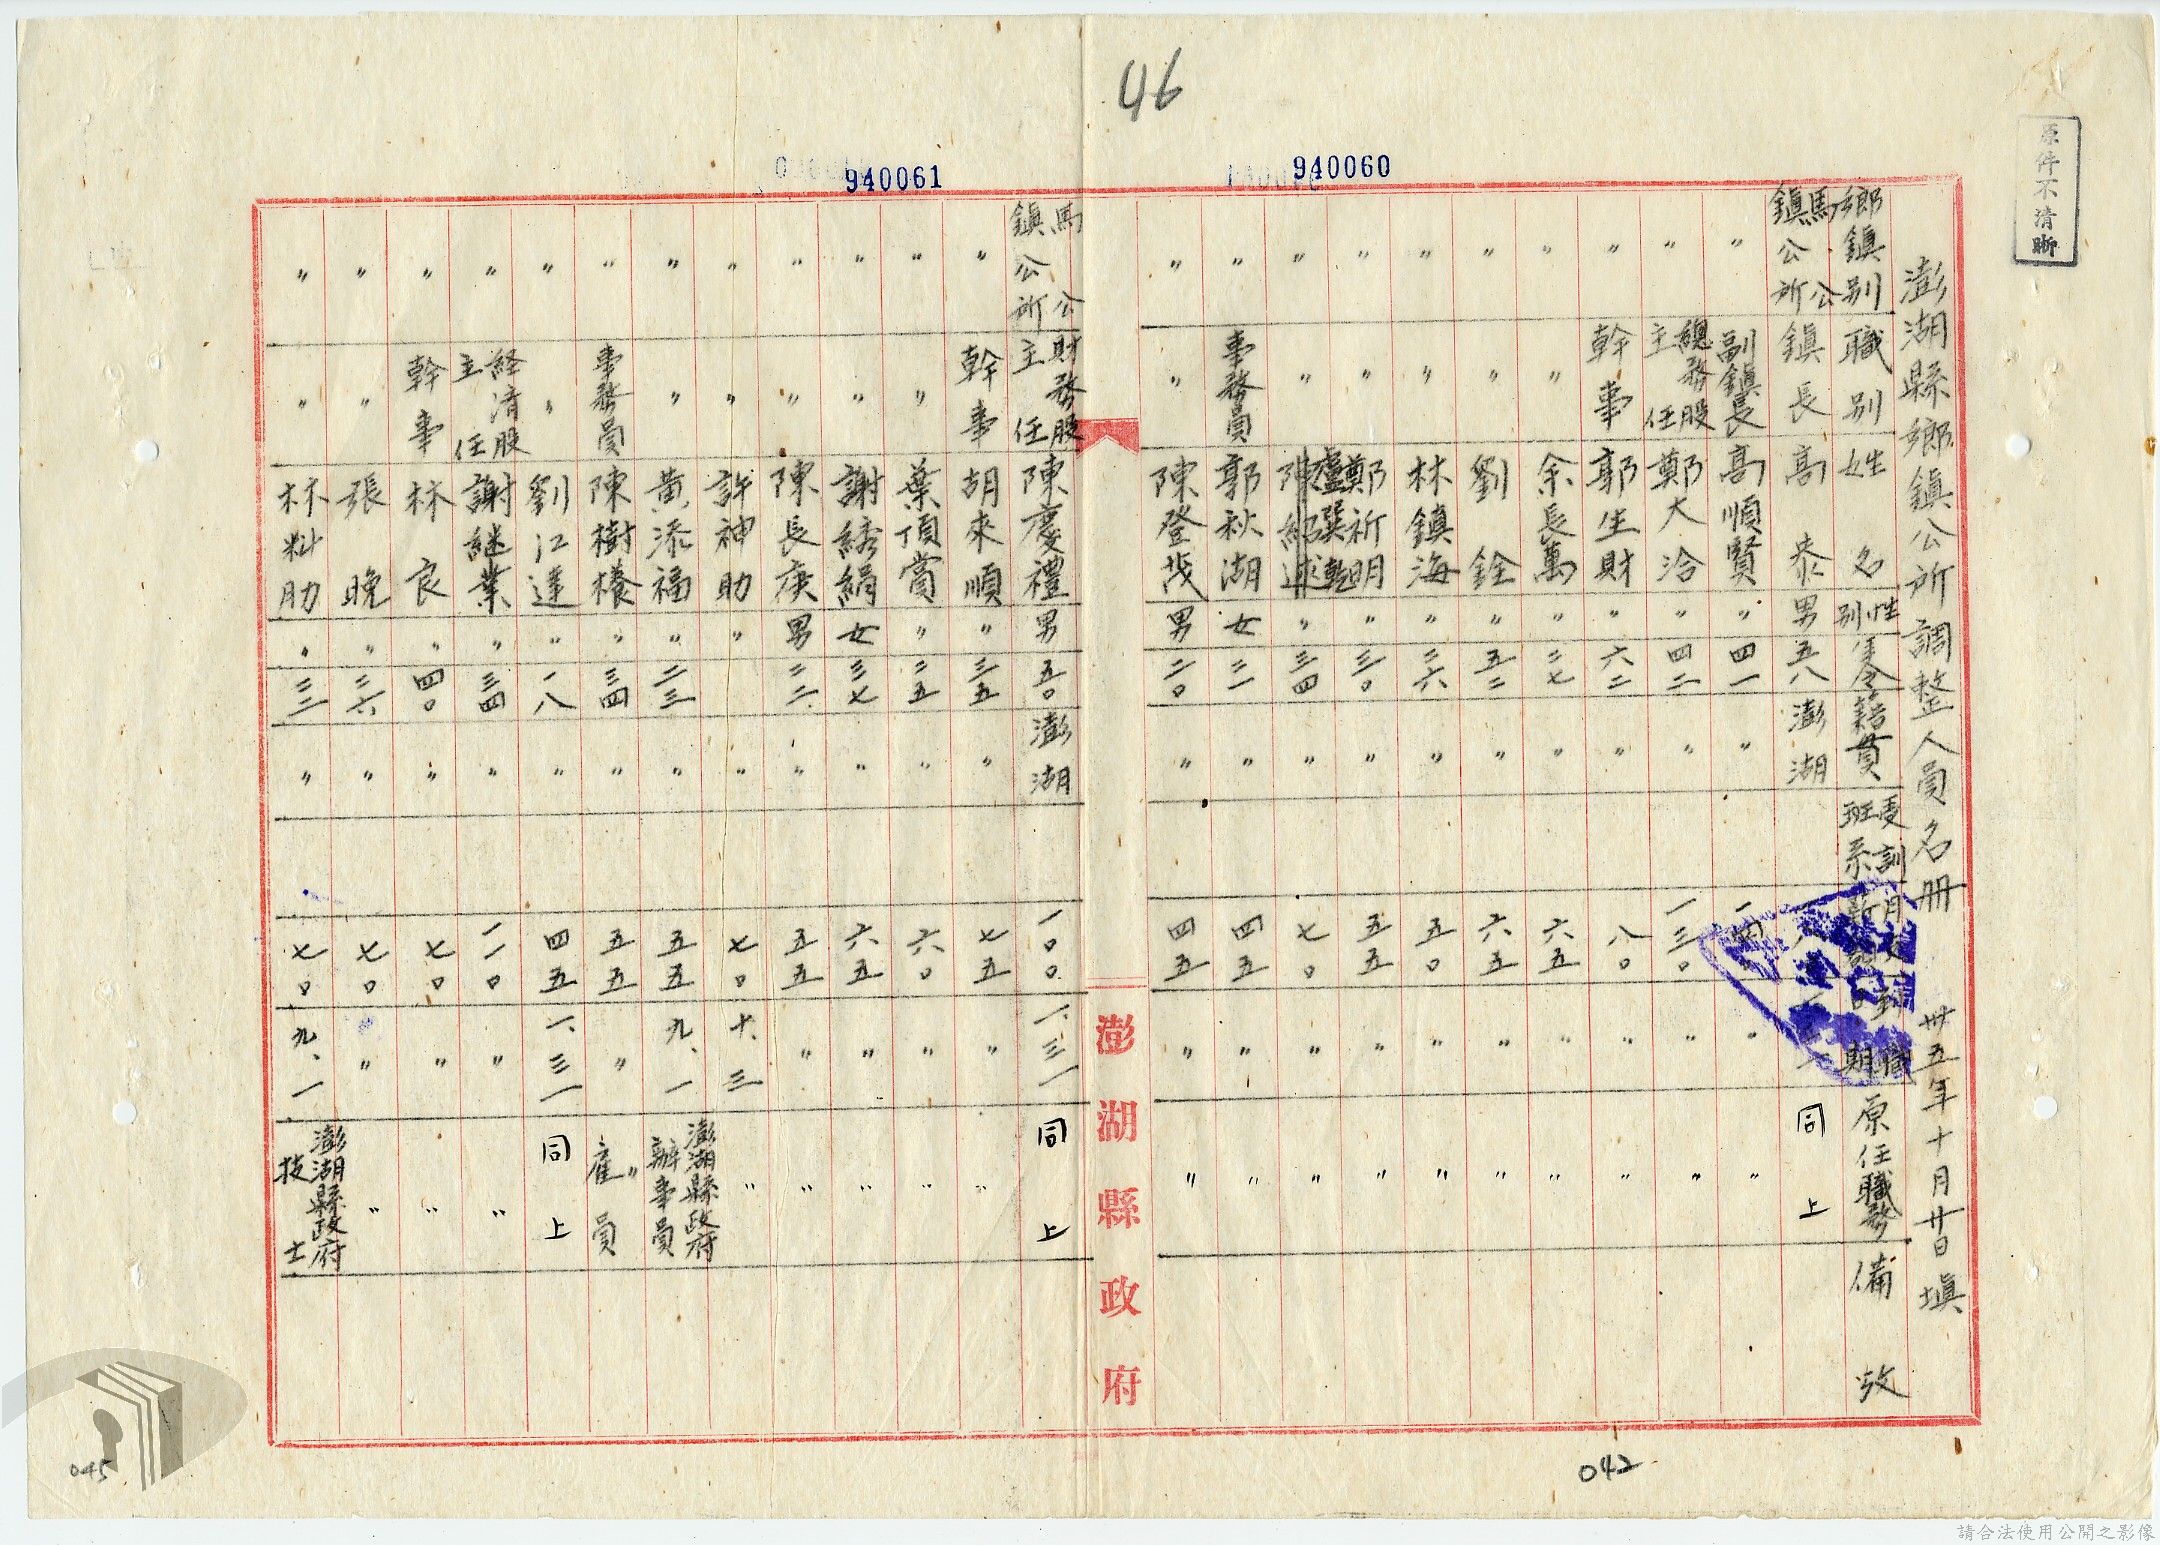 46
940060
940061
原件不清晰
澎湖縣鄉鎮公所調整人員名冊 卅五年十月廿日填
鄉鎮別 職別 姓名 性別 年令 籍貫 受訓班系 月支薪額 到職日期 原任職務 備攷
馬公鎮公所 鎮長 高泰 男 五八 澎湖 同上
〃 副鎮長 高順賢 〃 四一 〃 〃 〃
〃 總務股主任 鄭大洽 〃 四二 〃 一三〇 〃 〃
〃 幹事 郭生財 〃 六二 〃 八〇 〃 〃
〃 〃 余長萬 〃 二七 〃 六五 〃 〃
〃 〃 劉銓 〃 五二 〃 六五 〃 〃
〃 〃 林鎮海 〃 二六 〃 五〇 〃 〃
〃 〃 鄭祈明 〃 三〇 〃 五五 〃 〃
〃 〃 盧選乾 〃 三四 〃 七〇 〃 〃
〃 事務員 郭秋湖 女 二一 〃 四五 〃 〃
〃 〃 陳登茂 男 二〇 〃 四五 〃 〃
澎湖縣政府
馬公鎮公所 財務股主任 陳慶禮 男 五〇 澎湖 一〇〇 一、三一 同上
〃 幹事 胡來順 〃 三五 〃 七五 〃 〃
〃 〃 葉頂賞 〃 二五 〃 六〇 〃 〃
〃 〃 謝綉絹 女 三七 〃 六五 〃 〃
〃 〃 陳長庚 男 二二 〃 五五 〃 〃
〃 〃 許神助 〃 〃 七〇 十、三 〃
〃 〃 黃添福 〃 二三 〃 五五 九、一 澎湖縣政府辦事員
〃 事務員 陳樹樣 〃 三四 〃 五五 〃 〃雇員
〃 〃 劉江達 〃 一八 〃 四五 一、三一 同上
〃 経済股主任 謝継業 〃 三四 〃 一一〇 〃 〃
〃 幹事 林良 〃 四〇 〃 七〇 〃 〃
〃 〃 張晚 〃 二六 〃 七〇 〃 〃
〃 〃 林料肋 〃 三二 〃 七〇 九、一 澎湖縣政府技士
042
045
請合法使用公開之影像